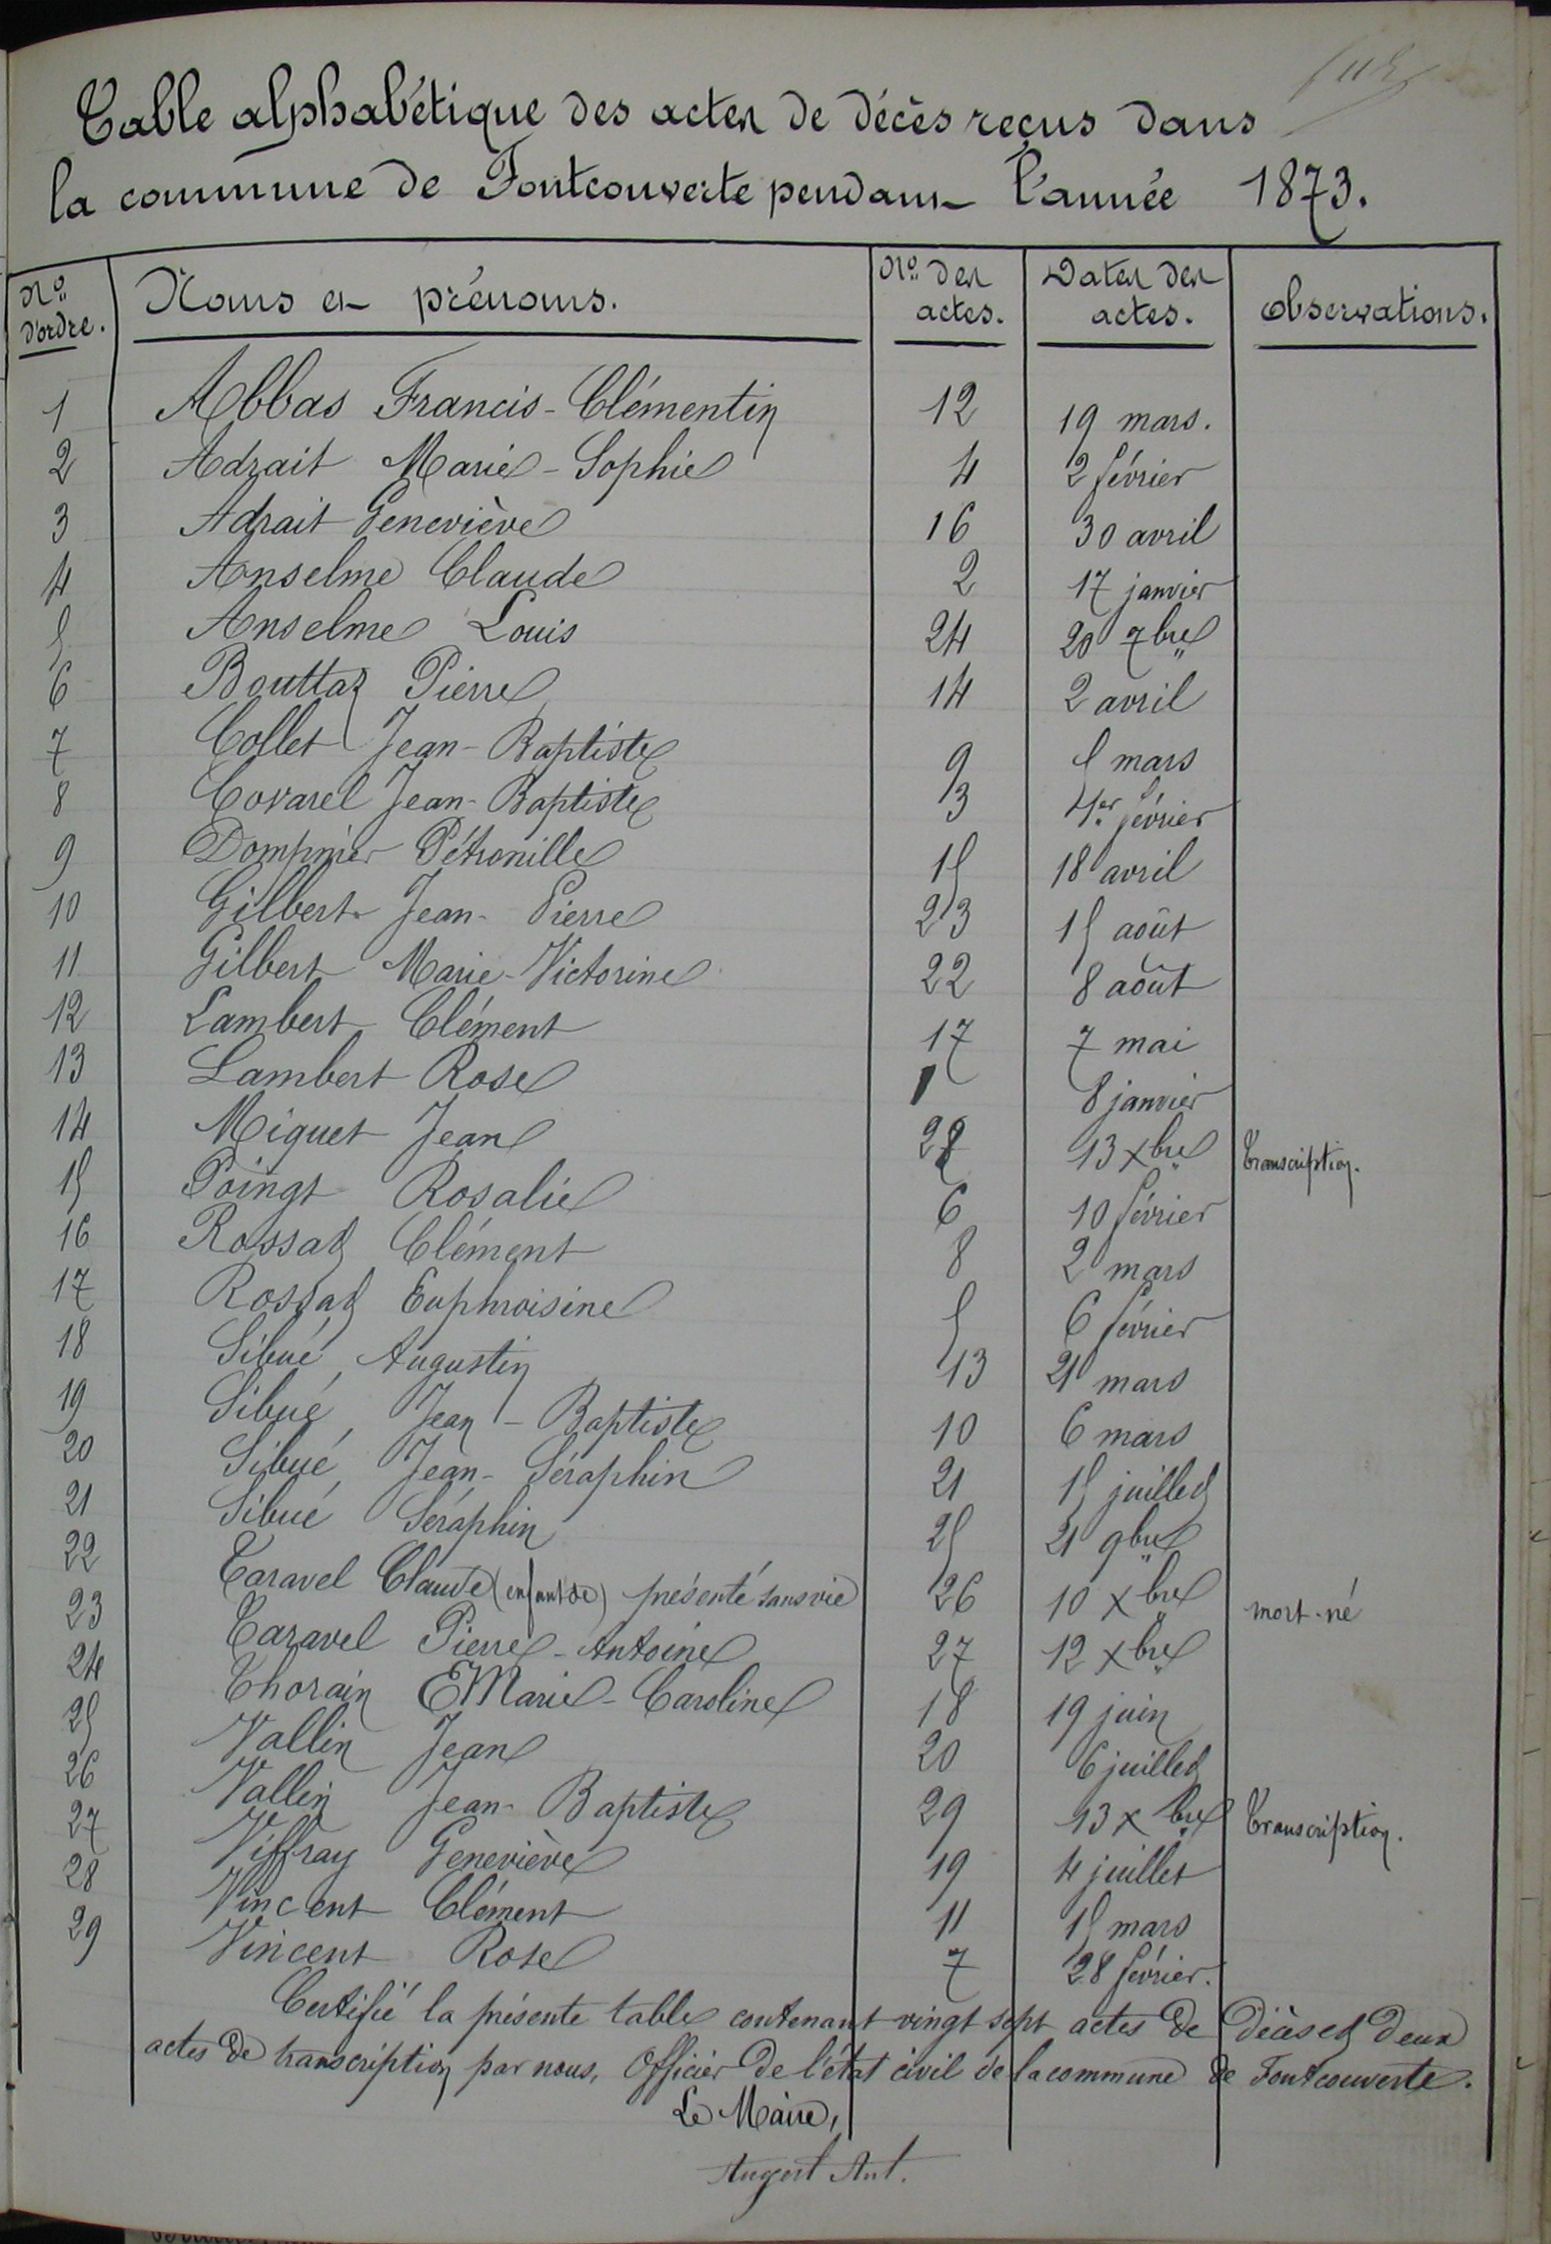 Table alphabétique des actes de décès reçus dans
la commune de Fontcouverte pendant l'année 1873.
N.º d'ordre. Noms et prénoms. N.º des actes. Dates des actes. Observations.
1 Abbas Francis-Clémentin 12 19 mars.
2 Adrait Marie-Sophie 4 2 février
3 Adrait Geneviève 16 30 avril
4 Anselme Claude 2 17 janvier
5 Anselme Louis 24 20 7bre
6 Bouttaz Pierre 14 2 avril
7 Collet Jean-Baptiste 9 5 mars
8 Covarel Jean-Baptiste 3 1er février
9 Dompnier Pétronille 15 18 avril
10 Gilbert Jean-Pierre 23 15 août
11 Gilbert Marie-Victorine 22 8 août
12 Lambert Clément 17 7 mai
13 Lambert Rose 1 8 janvier
14 Miquet Jean 28 13 xbre Transcription.
15 Poingt Rosalie 6 10 février
16 Rossat Clément 8 2 mars
17 Rossat Euphroisine 5 6 février
18 Sibué Augustin 13 21 mars
19 Sibué Jean-Baptiste 10 6 mars
20 Sibué Jean-Séraphin 21 15 juillet
21 Sibué Séraphin 25 21 9bre
22 Taravel Claude (enfant de) présenté sans vie 26 10 xbre mort-né
23 Taravel Pierre-Antoine 27 12 xbre
24 Thorain Marie-Caroline 18 19 juin
25 Vallin Jean 20 6 juillet
26 Vallin Jean-Baptiste 29 13 xbre Transcription.
27 Viffray Geneviève 19 4 juillet
28 Vincent Clément 11 15 mars
29 Vincent Rose 7 28 février.
Certifié la présente table contenant vingt sept actes de décès et deux
actes de transcription par nous, Officier de l'état civil de la commune de Fontcouverte.
Le Maire,
Augert Ant.